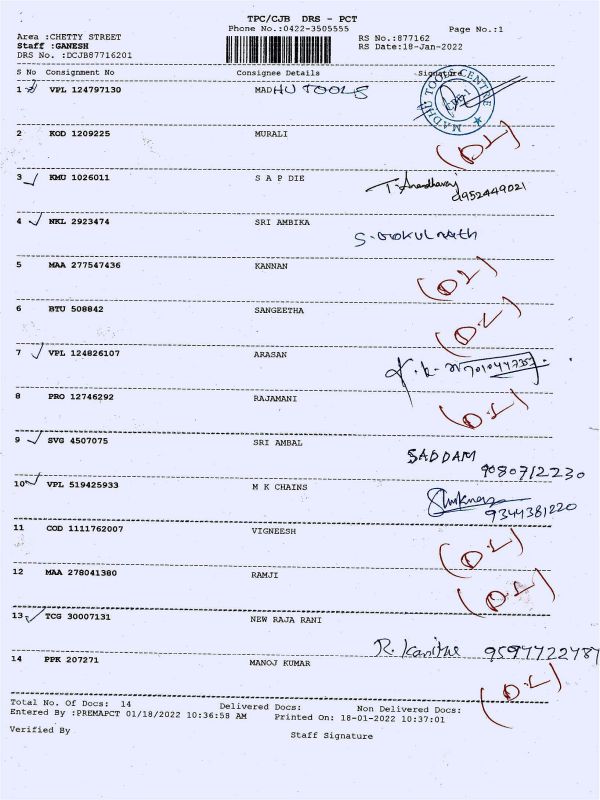 TPC/CJB DRS - PCT
Phone No.:0422-3505555 Page No.:1
Area :CHETTY STREET RS No.:877162
Staff :GANESH RS Date:18-Jan-2022
DRS No. :DCJB87716201
S No Consignment No Consignee Details Signature
1 VPL 124797130 MADHU TOOLS MADHU TOOLS CENTRE
2 KOD 1209225 MURALI (D.L)
3 KMU 1026011 S A P DIE T. Anandharaj
9952449021
4 NKL 2923474 SRI AMBIKA
S. Gokulnath
5 MAA 277547436 KANNAN (D.L)
6 BTU 508842 SANGEETHA (D.L)
7 VPL 124826107 ARASAN
8 PRO 12746292 RAJAMANI (D.L)
9 SVG 4507075 SRI AMBAL SADDAM
9080712230
10 VPL 519425933 M K CHAINS
9344381220
11 COD 1111762007 VIGNEESH (D.L)
12 MAA 278041380 RAMJI (D.L)
13 TCG 30007131 NEW RAJA RANI
R. Kavitha
14 PPK 207271 MANOJ KUMAR (D.L)
Total No. Of Docs: 14 Delivered Docs: Non Delivered Docs:
Entered By :PREMAPCT 01/18/2022 10:36:58 AM Printed On: 18-01-2022 10:37:01
Verified By Staff Signature